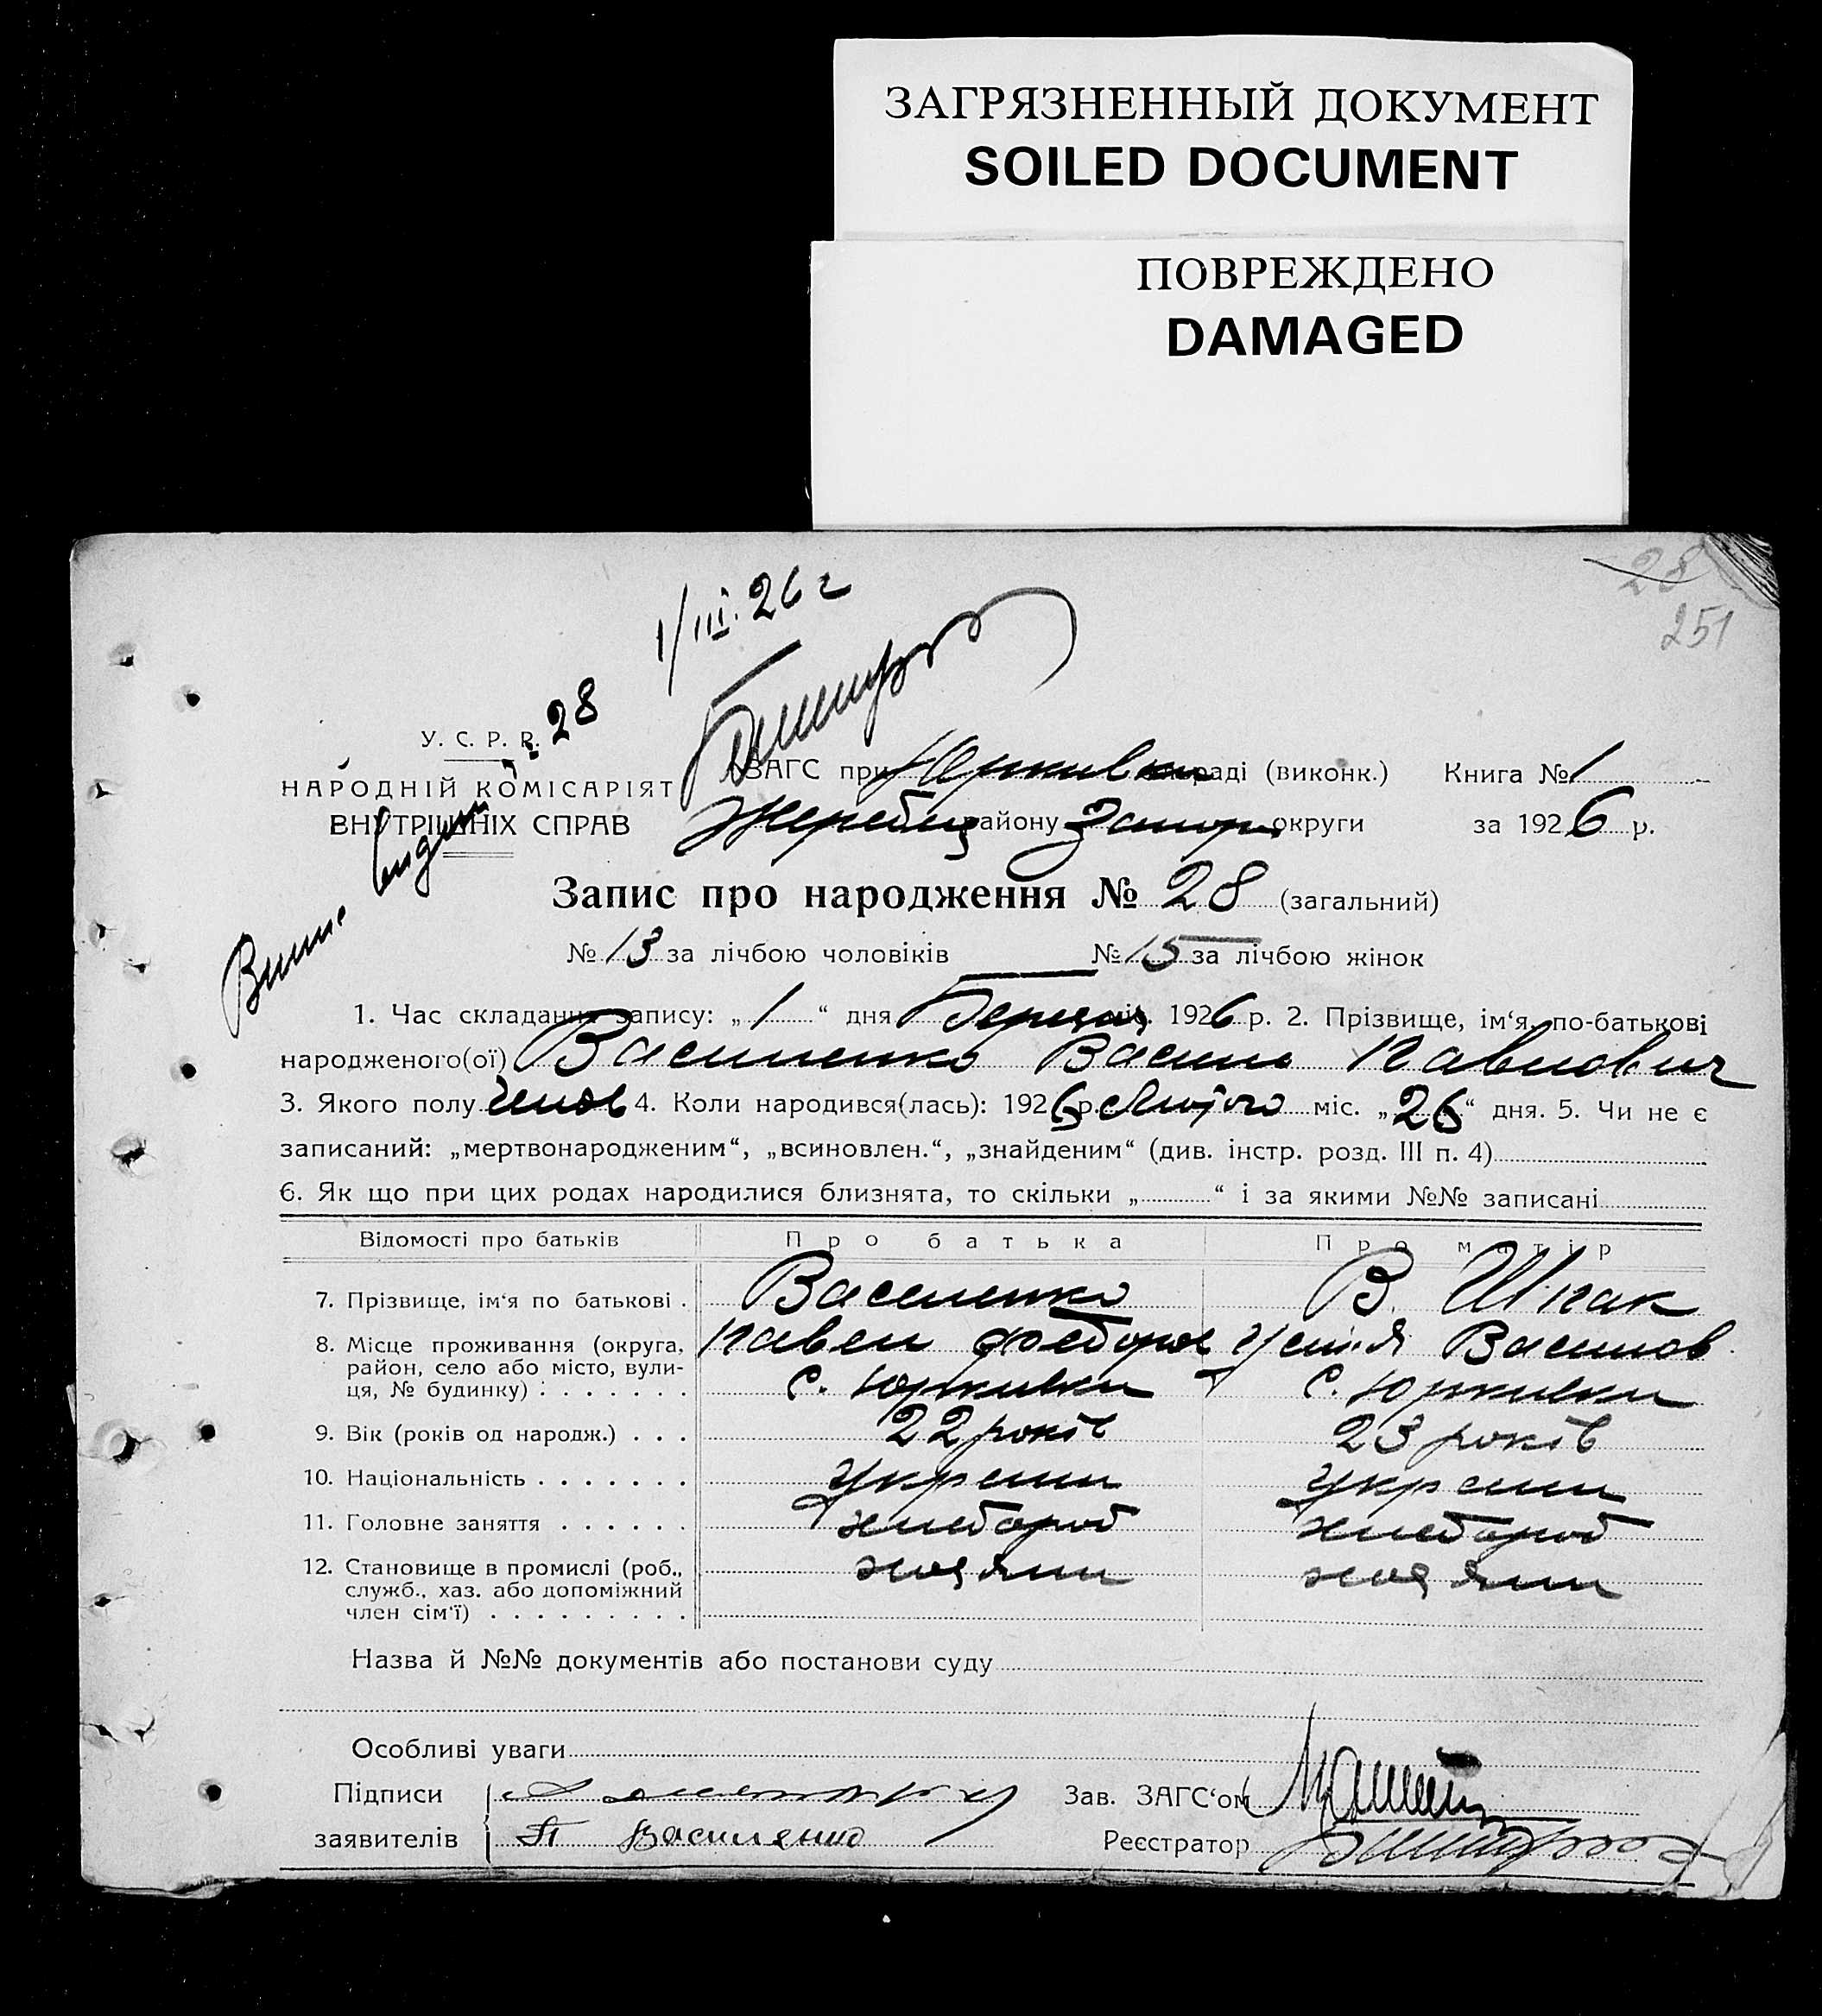 ЗАГРЯЗНЕННЫЙ ДОКУМЕНТ
SOILED DOCUMENT
ПОВРЕЖДЕНО
DAMAGED
28
251
1/III.26 г
У. С. Р. Р. № 28
НАРОДНІЙ КОМІСАРІЯТ
ВНУТРІШНІХ СПРАВ
ЗАГС при Юрківськ раді (виконк.) Книга № 1
Жеребец району Запор округи за 1926 р.
Запис про народження № 28 (загальний)
№ 13 за лічбою чоловіків № 15 за лічбою жінок
1. Час складання запису: „ 1 “ дня Березня міс. 1926 р. 2. Прізвище, ім‘я, по-батькові
народженого(ої) Василенко Василь Павлович
3. Якого полу чолов 4. Коли народився(лась): 1926 р. Лютого міс. „26“ дня. 5. Чи не є
записаний: „мертвонародженим“, „всиновлен.“, „знайденим“ (див. інстр. розд. III п. 4)
6. Як що при цих родах народилися близнята, то скільки „ “ і за якими №№ записані
Відомості про батьків Про батька Про матір
7. Прізвище, ім‘я по батькові . Василенко В. Шпак
8. Місце проживання (округа, Павел Федоров Устія Василов
район, село або місто, вули-
ця, № будинку) : . . . . . . с. Юрківки с. Юрківки
9. Вік (років од народж.) . . . 22 років 23 років
10. Національність . . . . . . . Україн Україн
11. Головне заняття . . . . . . хлебороб хлебороб
12. Становище в промислі (роб., хозяин хозяин
служб., хаз. або допоміжний
член сім‘ї) . . . . . . . . .
Назва й №№ документів або постанови суду
Особливі уваги
Підписи Зав. ЗАГС‘ом
заявителів П Василенко Реєстратор